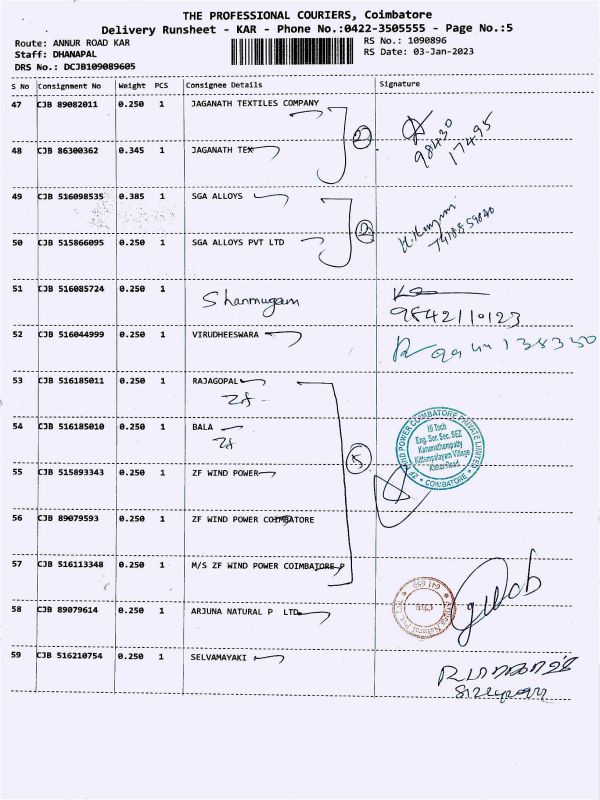 THE PROFESSIONAL COURIERS, Coimbatore
Delivery Runsheet - KAR - Phone No.:0422-3505555 - Page No.:5
Route: ANNUR ROAD KAR
RS No.: 1090896
Staff: DHANAPAL
RS Date: 03-Jan-2023
DRS No.: DCJB109089605
S No Consignment No Weight PCS Consignee Details Signature
47 CJB 89082011 0.250 1 JAGANATH TEXTILES COMPANY
2
98430
17495
48 CJB 86300362 0.345 1 JAGANATH TEX
49 CJB 516098535 0.385 1 SGA ALLOYS
2
50 CJB 515866095 0.250 1 SGA ALLOYS PVT LTD
51 CJB 516085724 0.250 1 Shanmugam
9842110123
52 CJB 516044999 0.250 1 VIRUDHEESWARA
53 CJB 516185011 0.250 1 RAJAGOPAL
Zf
54 CJB 516185010 0.250 1 BALA
Zf
5
ZF WIND POWER COIMBATORE PRIVATE LIMITED
Hi Tech
Eng. Sor. Soc. SEZ
Karumathampatty
Kittampalayam Village
Annur Road
COIMBATORE
55 CJB 515893343 0.250 1 ZF WIND POWER
56 CJB 89079593 0.250 1 ZF WIND POWER COIMBATORE
57 CJB 516113348 0.250 1 M/S ZF WIND POWER COIMBATORE P
58 CJB 89079614 0.250 1 ARJUNA NATURAL P LTD
Arjuna Natural Pvt. Ltd.
641 659
CBE
59 CJB 516210754 0.250 1 SELVAMAYAKI